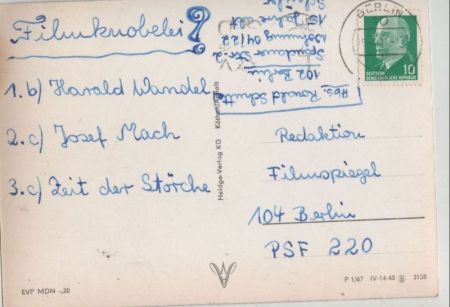 Filmknobelei?
1. b) Harald Wandel
2. c) Josef Mach
3. c) Zeit der Störche
Abs. Ronald Schutt
102 Berlin
Spandauer Str. 2
Wohnung 04/22
15 Jahre alt
Schüler
BERLIN
DEUTSCHE
DEMOKRATISCHE REPUBLIK
10
Redaktion
Filmspiegel
104 Berlin
PSF 220
Heldge-Verlag KG Köthen/Anhalt
EVP MDN -,20
P 1/67 IV-14-45 3158